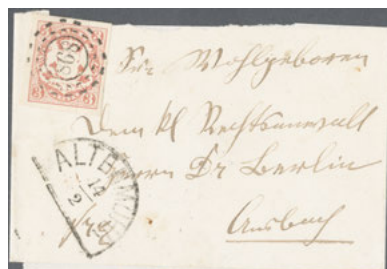 Sr. Wohlgeboren
Dem kl Rechtsanwalt
Herrn Dr Berlin
Ansbach
3
3
14
2